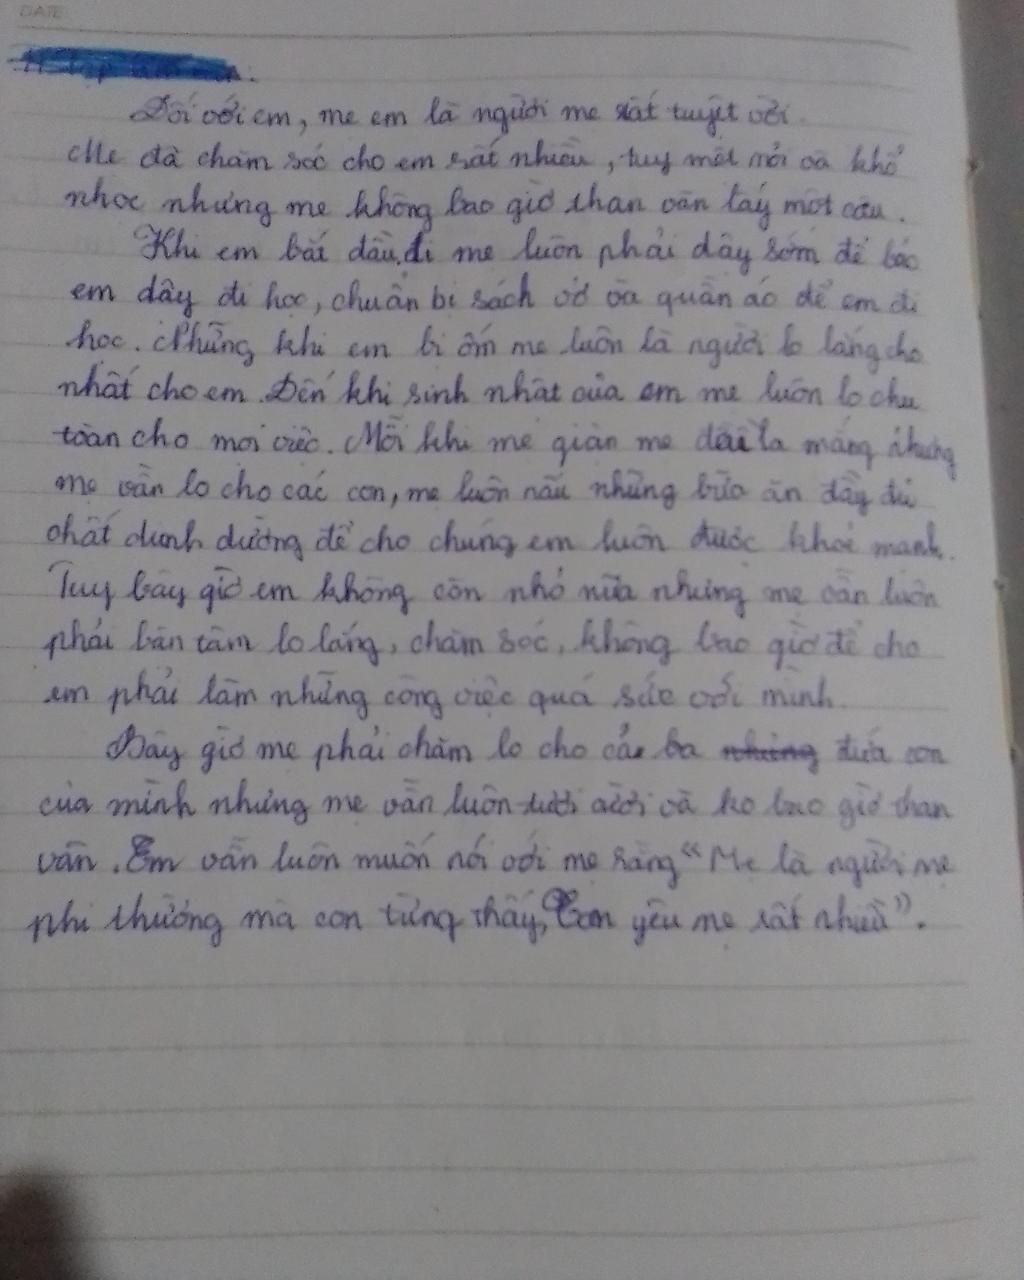 DATE
Đối với em, mẹ em là người mẹ rất tuyệt vời.
Mẹ đã chăm sóc cho em rất nhiều, tuy mệt mỏi và khổ
nhọc nhưng mẹ không bao giờ than vãn lấy một câu.
Khi em bắt đầu đi mẹ luôn phải dậy sớm để báo
em dậy đi học, chuẩn bị sách vở và quần áo để em đi
học. Những khi em bị ốm mẹ luôn là người lo lắng cho
nhất cho em. Đến khi sinh nhật của em mẹ luôn lo chu
toàn cho mọi việc. Mỗi khi mẹ giận mẹ la mắng nhưng
mẹ vẫn lo cho các con, mẹ luôn nấu những bữa ăn đầy đủ
chất dinh dưỡng để cho chúng em luôn được khỏe mạnh.
Tuy bây giờ em không còn nhỏ nữa nhưng mẹ vẫn luôn
phải bận tâm lo lắng, chăm sóc, không bao giờ để cho
em phải làm những công việc quá sức với mình.
Bây giờ mẹ phải chăm lo cho cả ba đứa con
của mình nhưng mẹ vẫn luôn tươi cười và ko bao giờ than
vãn. Em vẫn luôn muốn nói với mẹ rằng "Mẹ là người mẹ
phi thường mà con từng thấy, Con yêu mẹ rất nhiều".